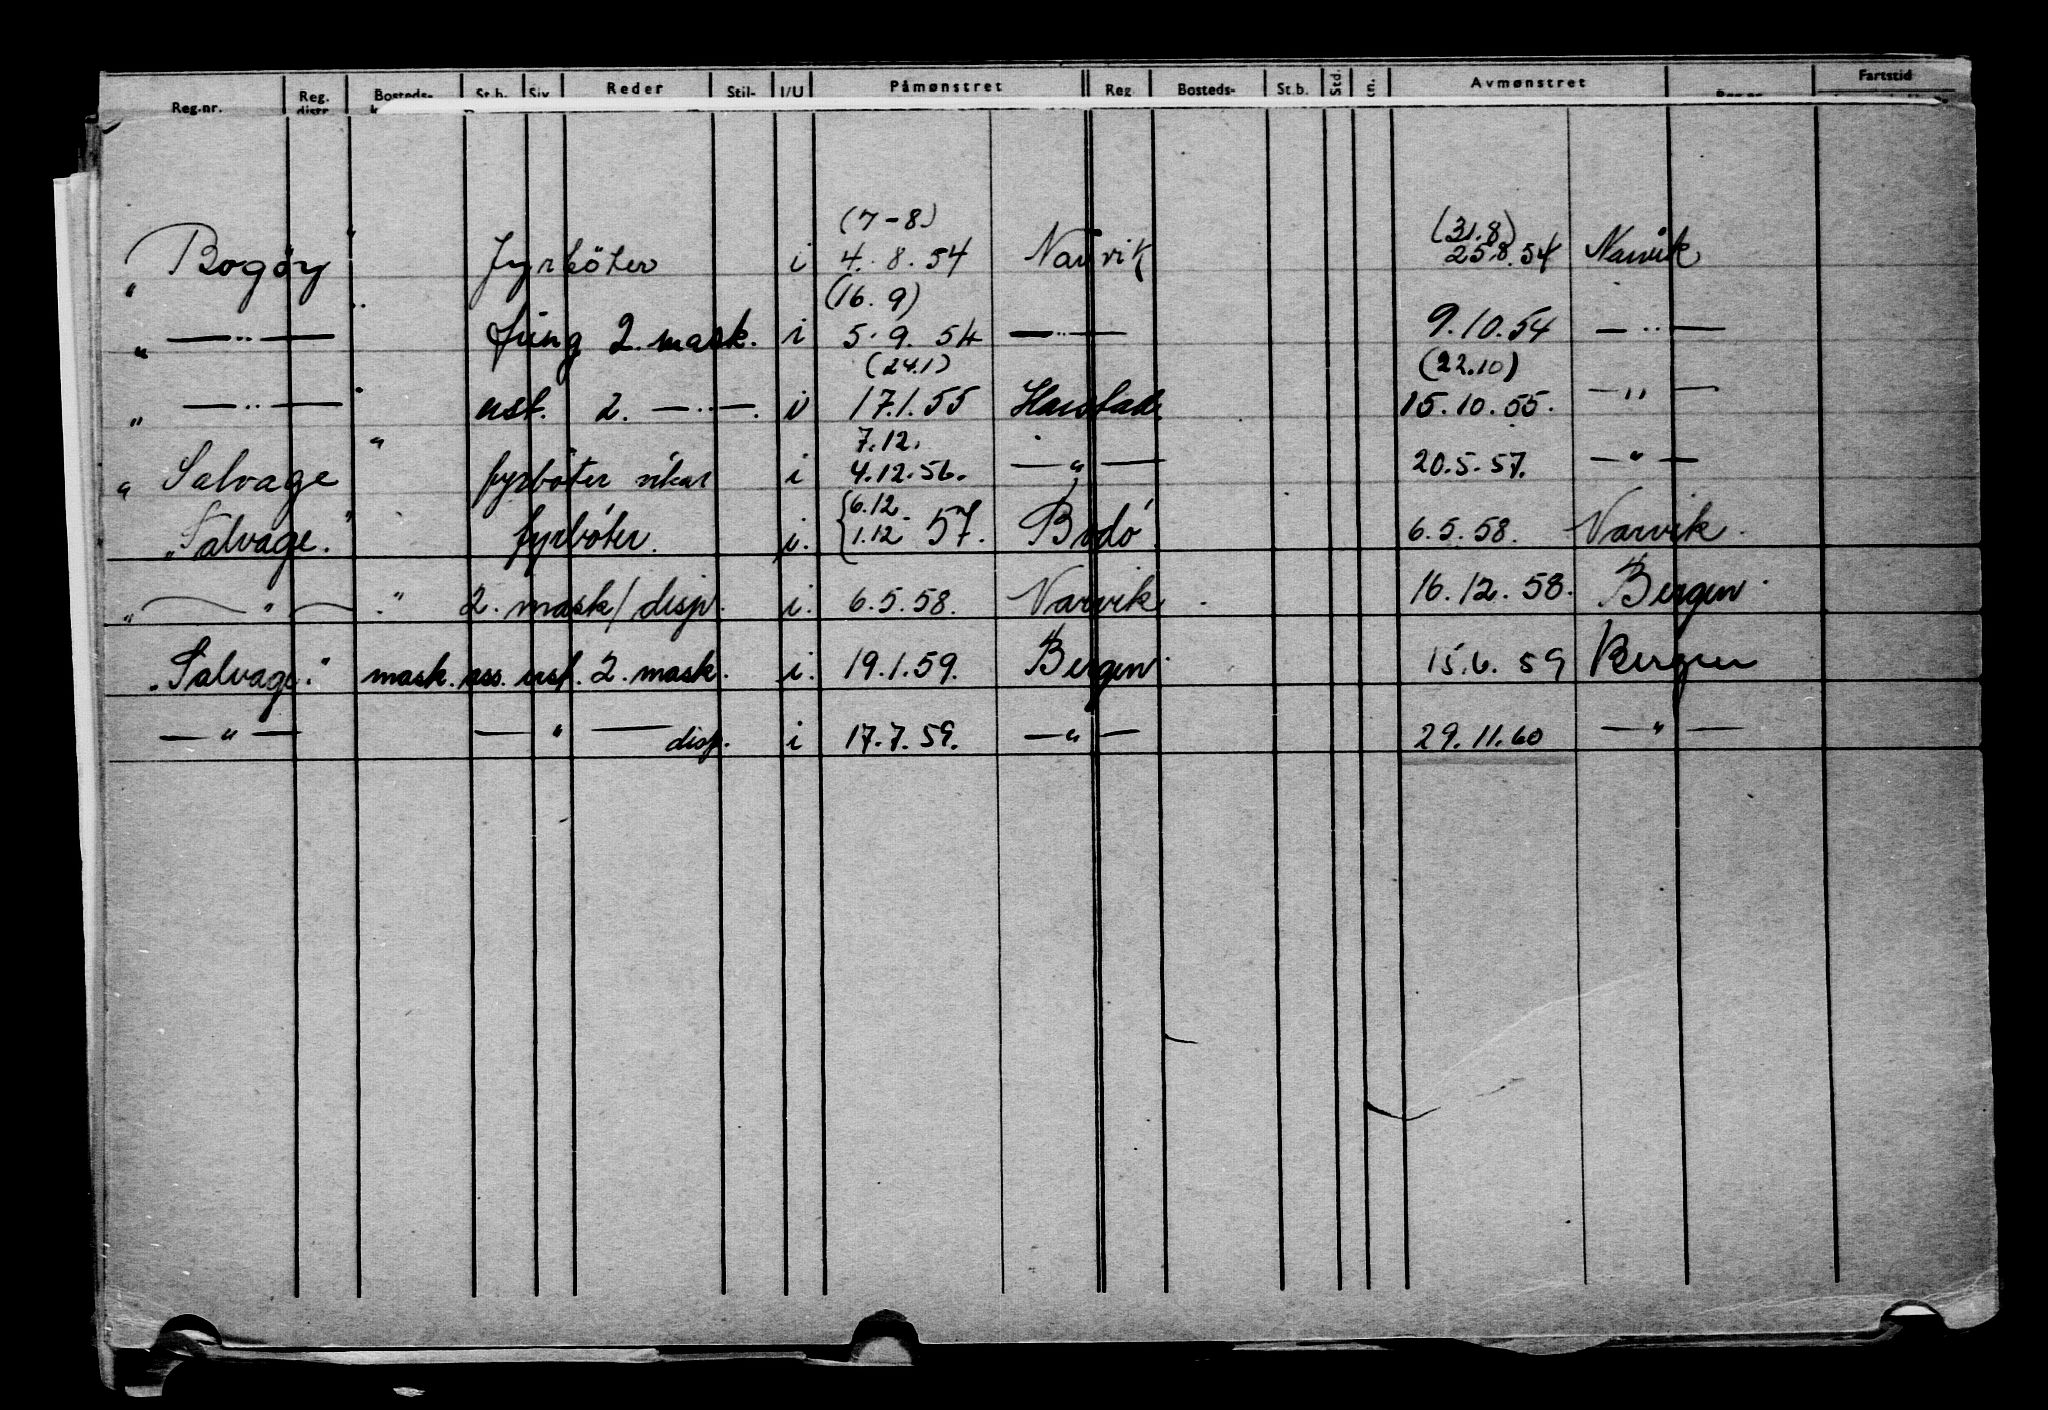 Reg.nr. Reg. distr. Bosteds- St.b. Siv. Reder Stil- I/U Påmønstret Reg Bosteds- St.b. Std. Avmønstret Fartstid
(7-8) (31.8)
"Bogøy" Fyrböter i 4.8.54 Narvik 25.8.54 Narvik
(16.9)
" — .. — " fung 2. mask. i 5.9.54 — .. — 9.10.54 — .. —
(24.1) (22.10)
" — .. — " ust. 2. — .. —. i 17.1.55 Harstad 15.10.55. — " —
7.12.
"Salvage" fyrböter vikar i 4.12.56. — " — 20.5.57. — " —
6.12
"Salvage." fyrböter. i. 1.12 57. Bodö. 6.5.58. Narvik.
" — " — " 2. mask/disp. i. 6.5.58. Narvik. 16.12.58. Bergen.
"Salvage." mask. ass. ust. 2. mask. i. 19.1.59. Bergen. 15.6.59 Bergen
— " — — " — disp. i 17.7.59. — " — 29.11.60 — " —